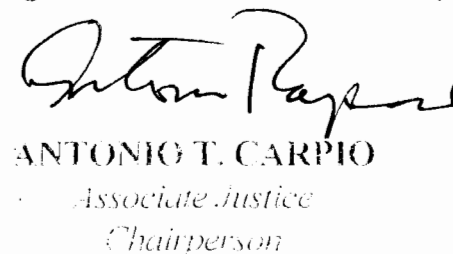 ANTONIO T. CARPIO
Associate Justice
Chairperson